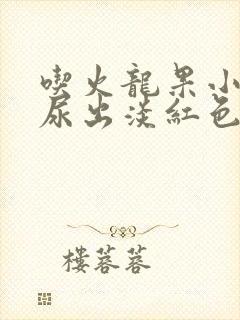 喫火龍果小
尿出淡紅色
樓蓉蓉